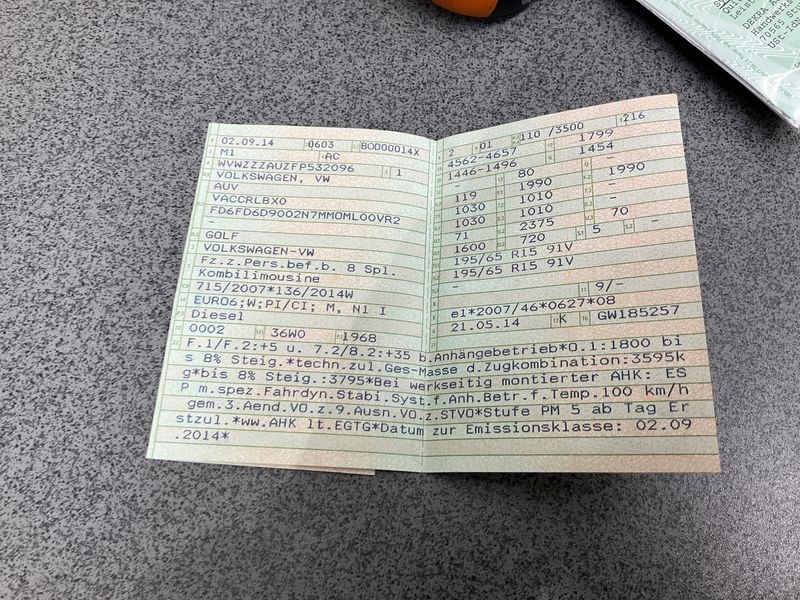 02.09.14 0603 BOD00014X
M1 AC
WVWZZZAUZFP532096 1
VOLKSWAGEN, VW
AUV
VACCRLBX0
FD6FD6D9002N7MMOMLOOVR2
-
GOLF
VOLKSWAGEN-VW
Fz.z.Pers.bef.b. 8 Spl.
Kombilimousine
715/2007*136/2014W
EURO6;W;PI/CI; M, N1 I
Diesel
0002 36W0 1968
2 01 110 /3500 216
4562-4657 1799
1446-1496 1454
- 80 -
119 1990 1990
1030 1010 -
1030 1010 -
71 2375 70
1600 720 5 -
195/65 R15 91V
195/65 R15 91V
-
- 9/-
e1*2007/46*0627*08
21.05.14 K GW185257
F.1/F.2:+5 u. 7.2/8.2:+35 b.Anhängebetrieb*O.1:1800 bi
s 8% Steig.*techn.zul.Ges-Masse d.Zugkombination:3595k
g*bis 8% Steig.:3795*Bei werkseitig montierter AHK: ES
P m.spez.Fahrdyn.Stabi.Syst.f.Anh.Betr.f.Temp.100 km/h
gem.3.Aend.VO.z.9.Ausn.VO.z.STVO*Stufe PM 5 ab Tag Er
stzul.*ww.AHK lt.EGTG*Datum zur Emissionsklasse: 02.09
.2014*
DEKRA
Handwerks
70565
USt-Id